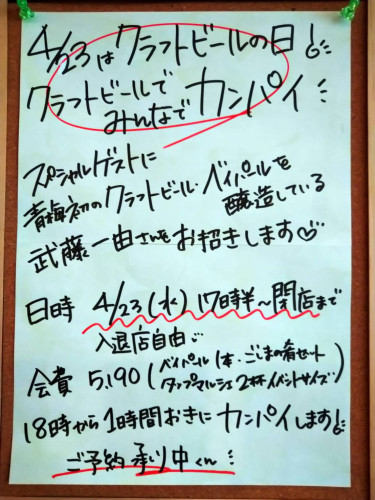 4/23はクラフトビールの日!
クラフトビールで
みんなでカンパイ!
スペシャルゲストに
青梅初のクラフトビール・ベイパールを
醸造している
武藤一由さんをお招きします♡
日時 4/23(水)17時半~閉店まで
入退店自由
会費 5,190(ベイパール1本・ごしまの肴セット
タップマルシェ2杯イベントサイズ)
18時から1時間おきにカンパイします!
ご予約承り中